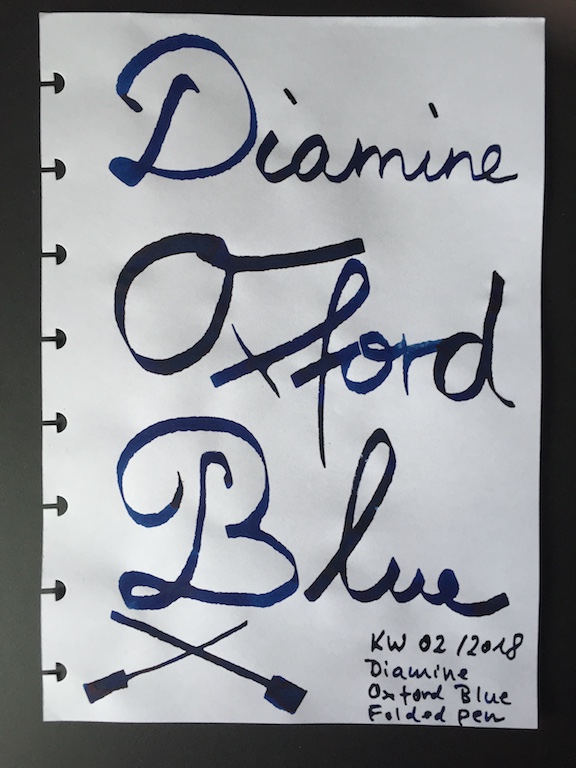 Diamine
Oxford
Blue
KW 02/2018
Diamine
Oxford Blue
Folded pen